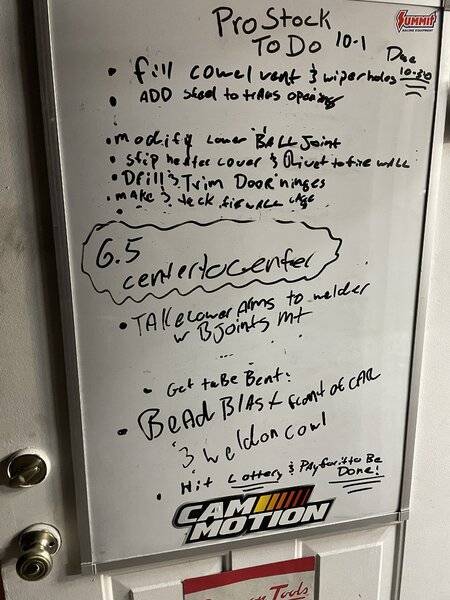 Pro Stock
SUMMIT
RACING EQUIPMENT
To Do 10-1
Due
10-30
• Fill cowel vent & wiper holes
• ADD steel to trans opening
• modify Lower BALL Joint
• Stip heater cover & Rivet to fire wall
• Drill & Trim Door hinges
• make & tack firewall cage
•
6.5
center to center
• TAKe Lower Arms to welder
w BJoints mt
...
• Get tube Bent:
• BeAd BlAst front of CAR
& weld on cowl
• Hit Lottery & Pay for it to Be
Done!
CAM
MOTION
Tools